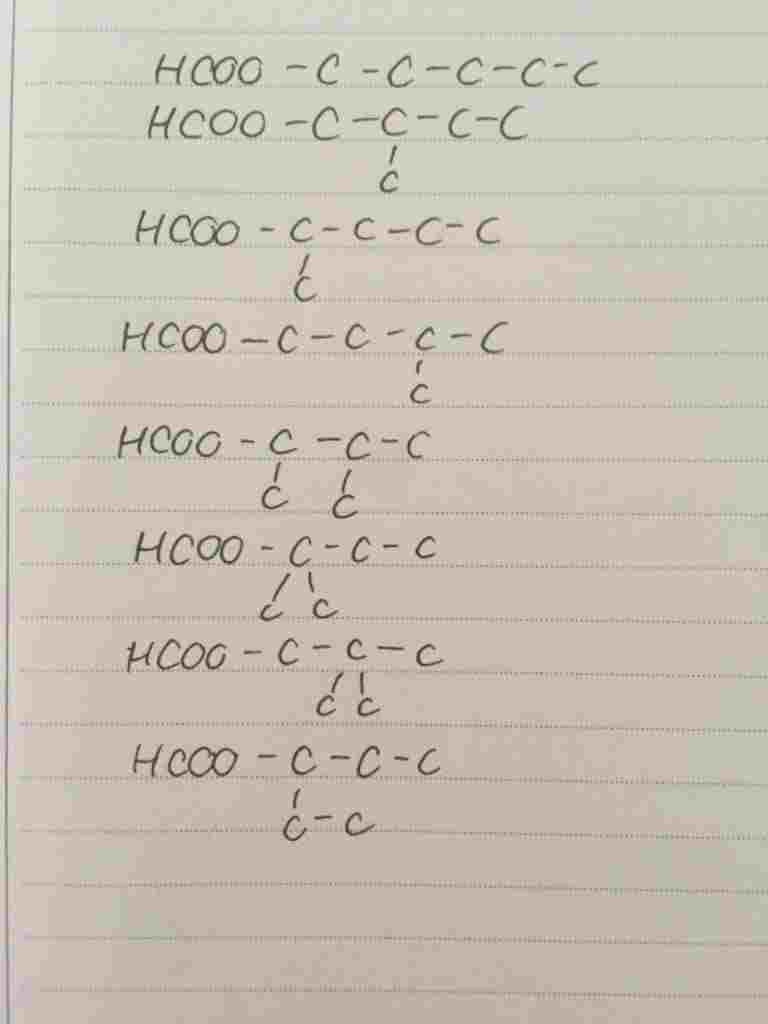 HCOO - C - C - C - C - C
HCOO - C - C - C - C
C
HCOO - C - C - C - C
C
HCOO - C - C - C - C
C
HCOO - C - C - C
C C
HCOO - C - C - C
C C
HCOO - C - C - C
C C
HCOO - C - C - C
C - C